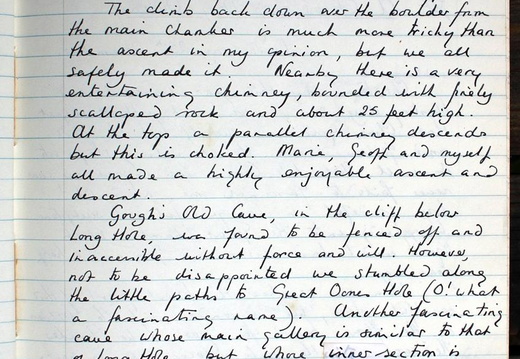 The climb back down over the boulder from
the main chamber is much more tricky than
the ascent in my opinion, but we all
safely made it. Nearby there is a very
entertaining chimney, bounded with finely
scalloped rock and about 25 feet high.
At the top a parallel chimney descends
but this is choked. Marie, Geoff and myself
all made a highly enjoyable ascent and
descent.
Gough's Old Cave, in the cliff below
Long Hole, was found to be fenced off and
inaccessible without force and will. However,
not to be disappointed we stumbled along
the little paths to Great Oones Hole (O! what
a fascinating name). Another fascinating
cave whose main gallery is similar to that
of Long Hole but whose inner section is